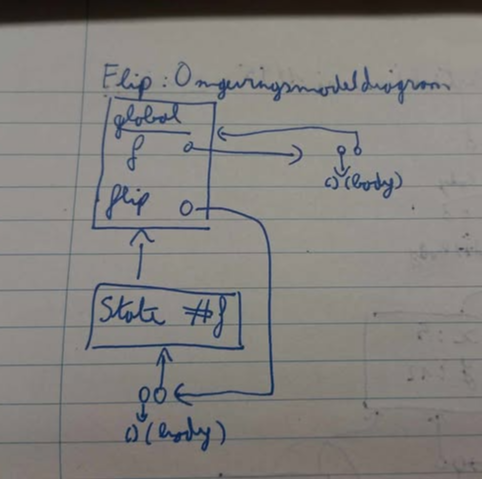 Flip: Omgevingsmodeldiagram
global
f
()(body)
flip
State #f
()(body)